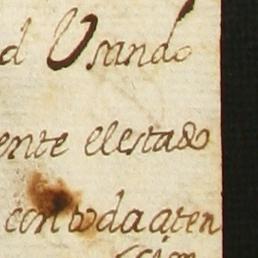 d Usando
ente el estado
con toda aten